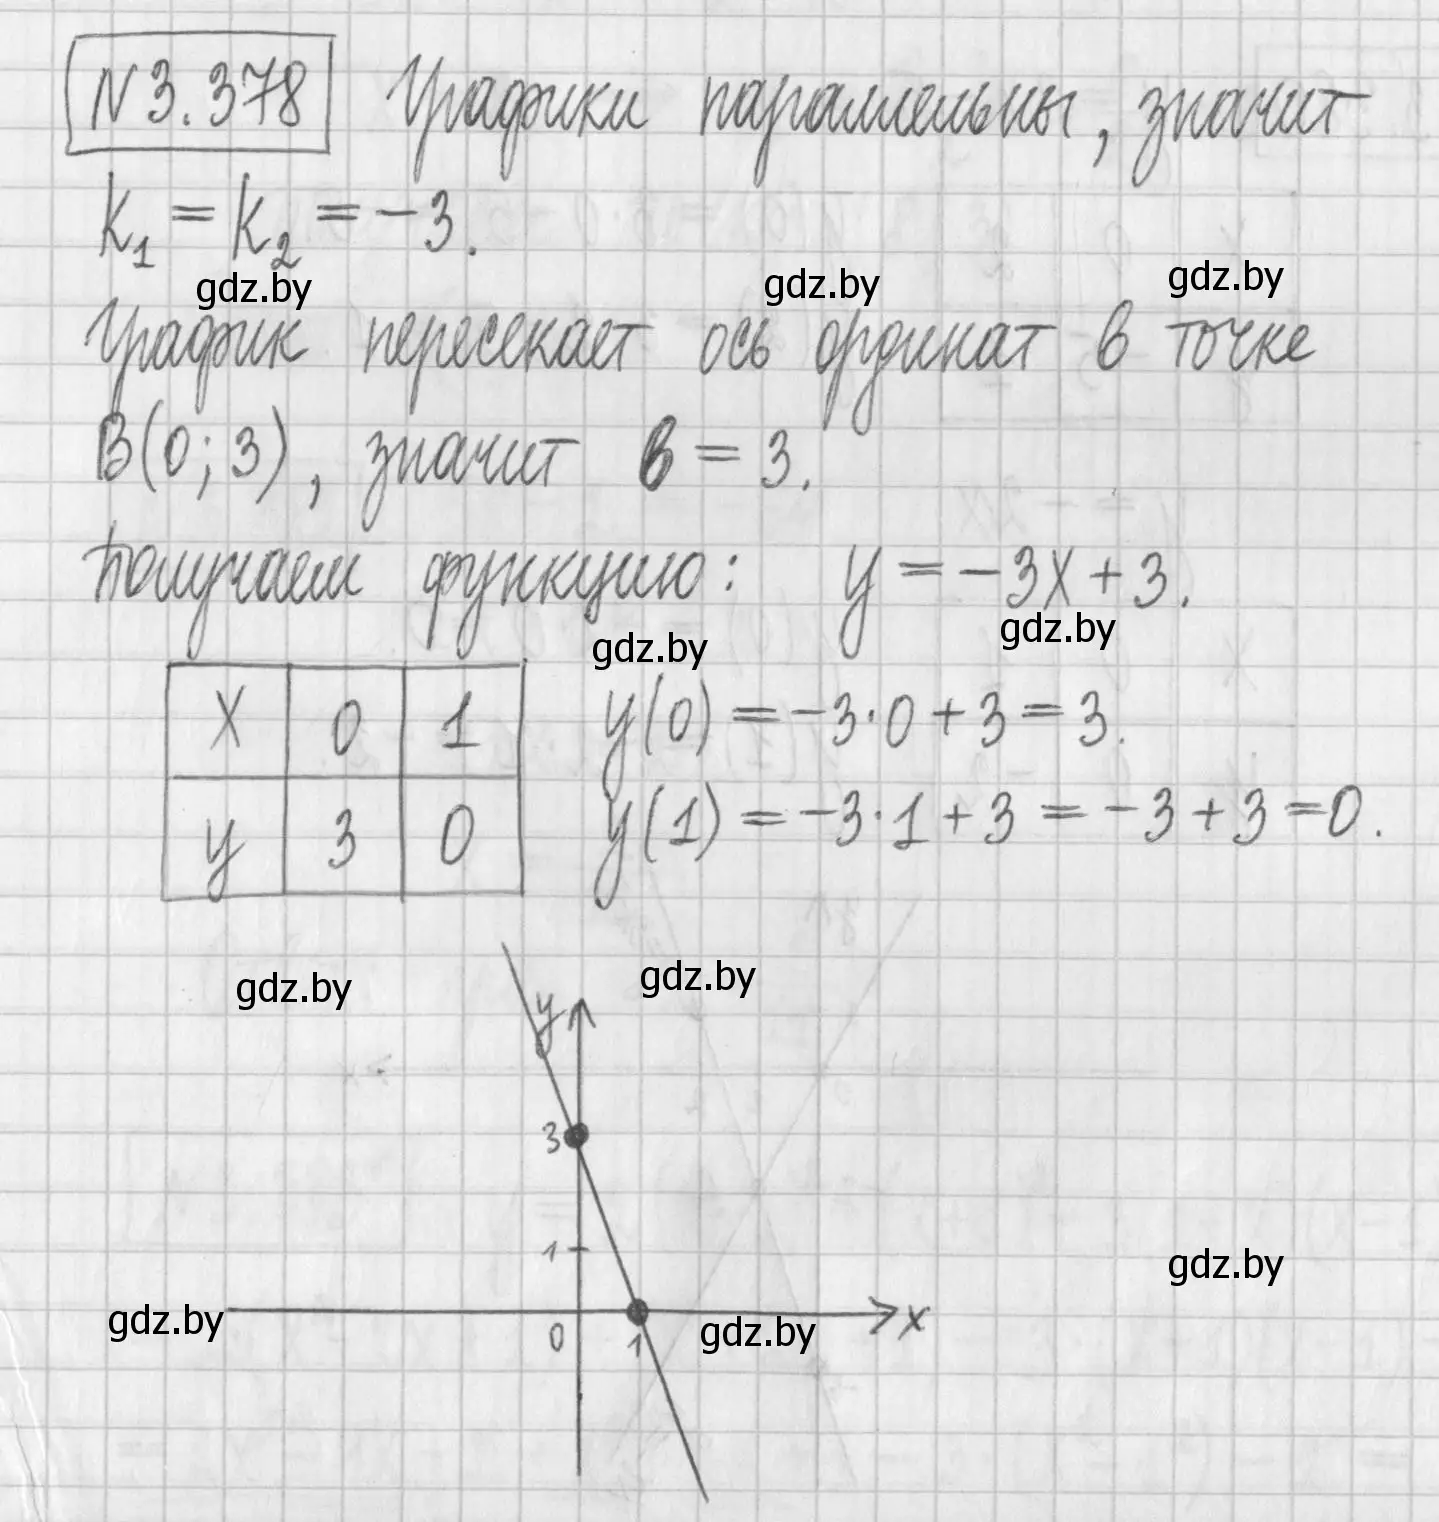 N3.378 Графики параллельны, значит
k₁ = k₂ = -3.
gdz.by gdz.by gdz.by
График пересекает ось ординат в точке
B(0; 3), значит b = 3.
Получаем функцию: y = -3x + 3.
gdz.by gdz.by
x 0 1
y 3 0
y(0) = -3·0 + 3 = 3.
y(1) = -3·1 + 3 = -3 + 3 = 0.
gdz.by gdz.by
y
3
1
gdz.by
gdz.by 0 1 gdz.by x